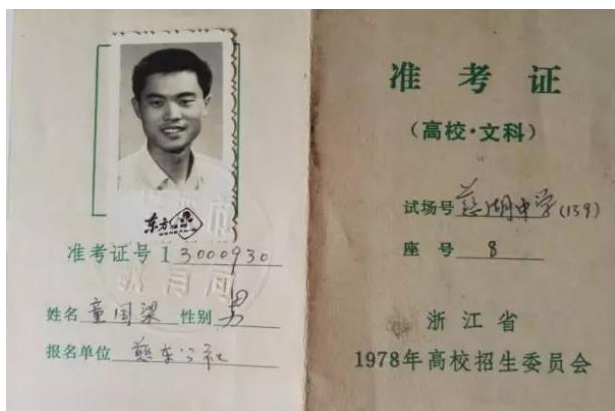 东方
准考证号 13000930
姓名 童国梁 性别 男
报名单位 慈东公社
准考证
(高校·文科)
试场号 慈湖中学(139)
座号 8
浙江省
1978年高校招生委员会